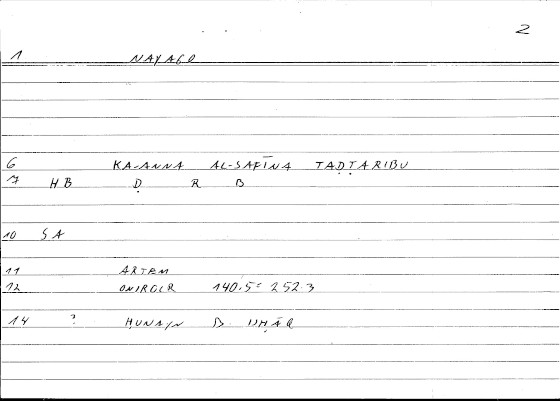 2
1 NAYAGO
6 KA-ANNA AL-SAFĪNA TAḌṬARIBU
7 HB Ḍ R B
10 SA
11 ARTEM
12 ONIROCR 140.5 = 252.3
14 ? ḤUNAYN B. ISḤĀQ